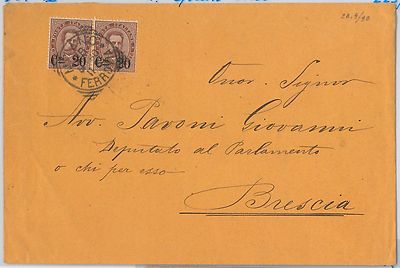 28.9/90
Cmi 20 Cmi 20
FERR
Onor. Signor
Avv. Pavoni Giovanni
Deputato al Parlamento
o chi per esso
Brescia